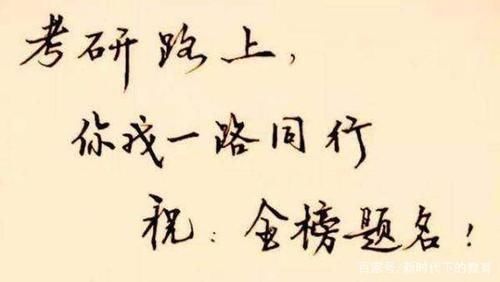 考研路上,
你我一路同行
祝:金榜题名!
百家号/新时代下的教育